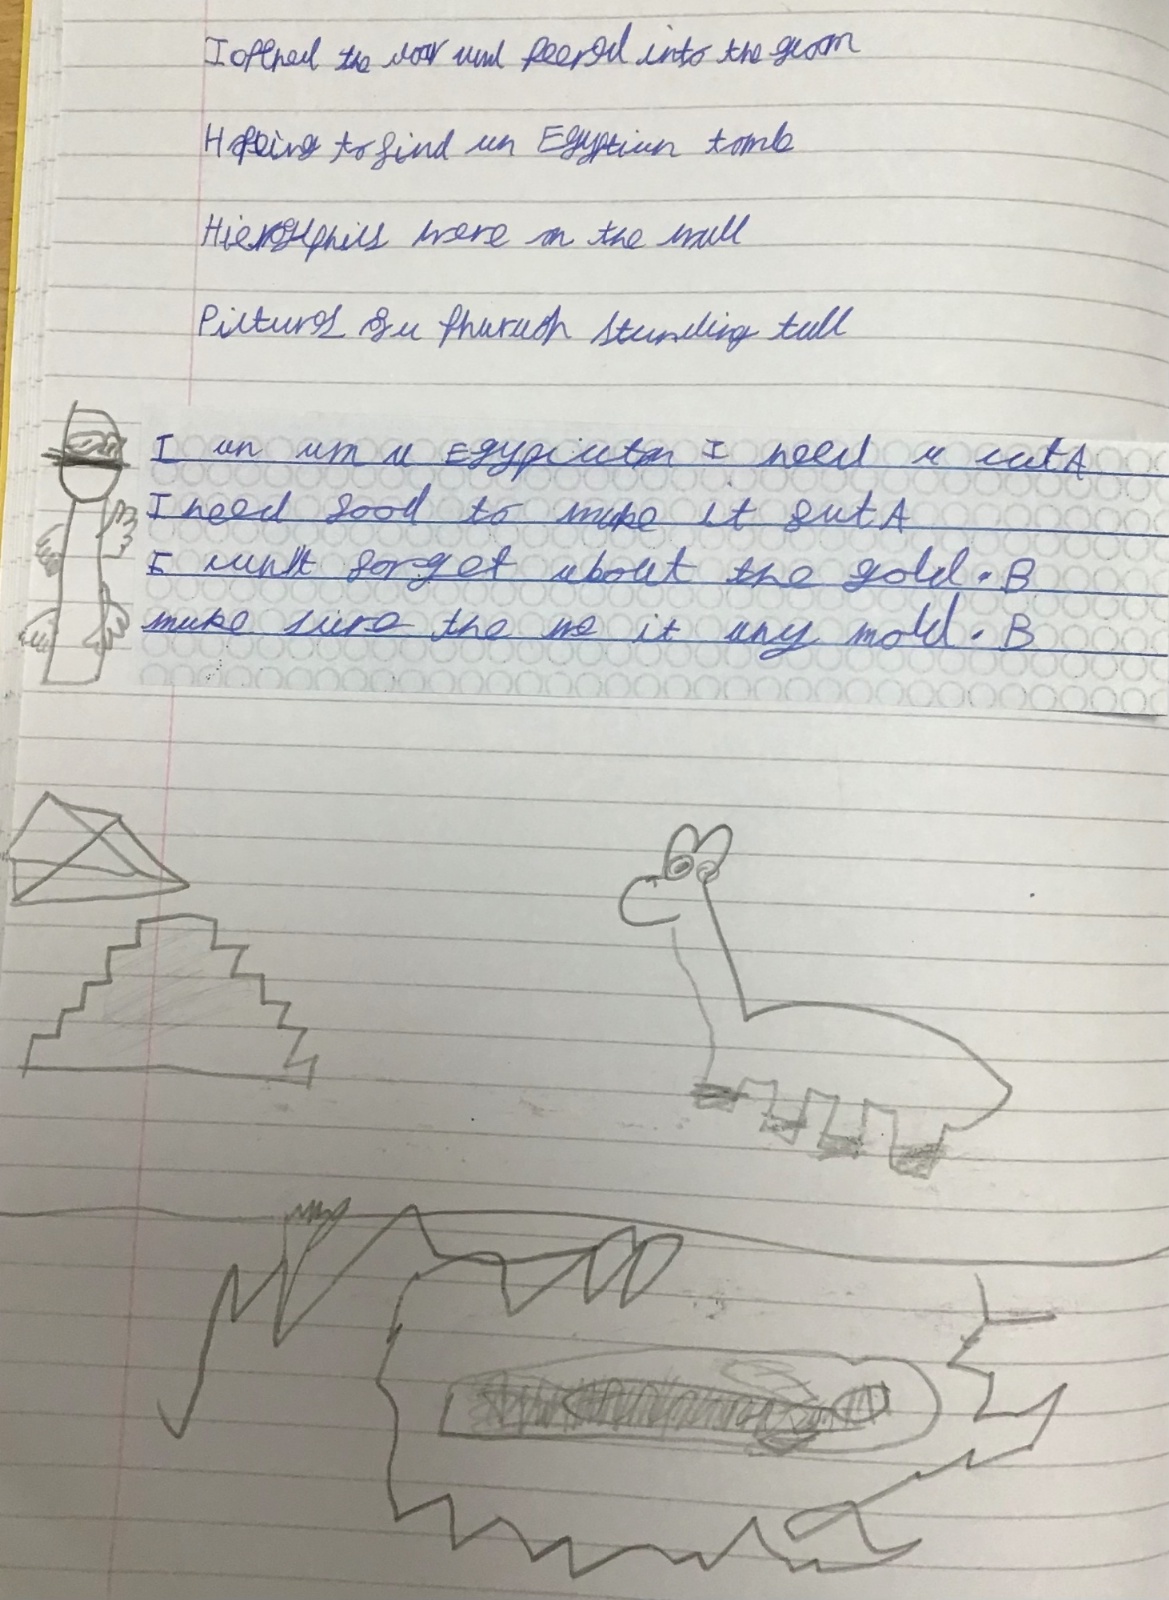 I opened the door and peered into the gloom
Hopeing to find an Egyptian tomb
were on the wall
Pictures of a pharaoh standing tall
I an am a Egypician I need a cat A
I need food to make it fat A
I can't forget about the gold. B
make sure the ne it any mold. B